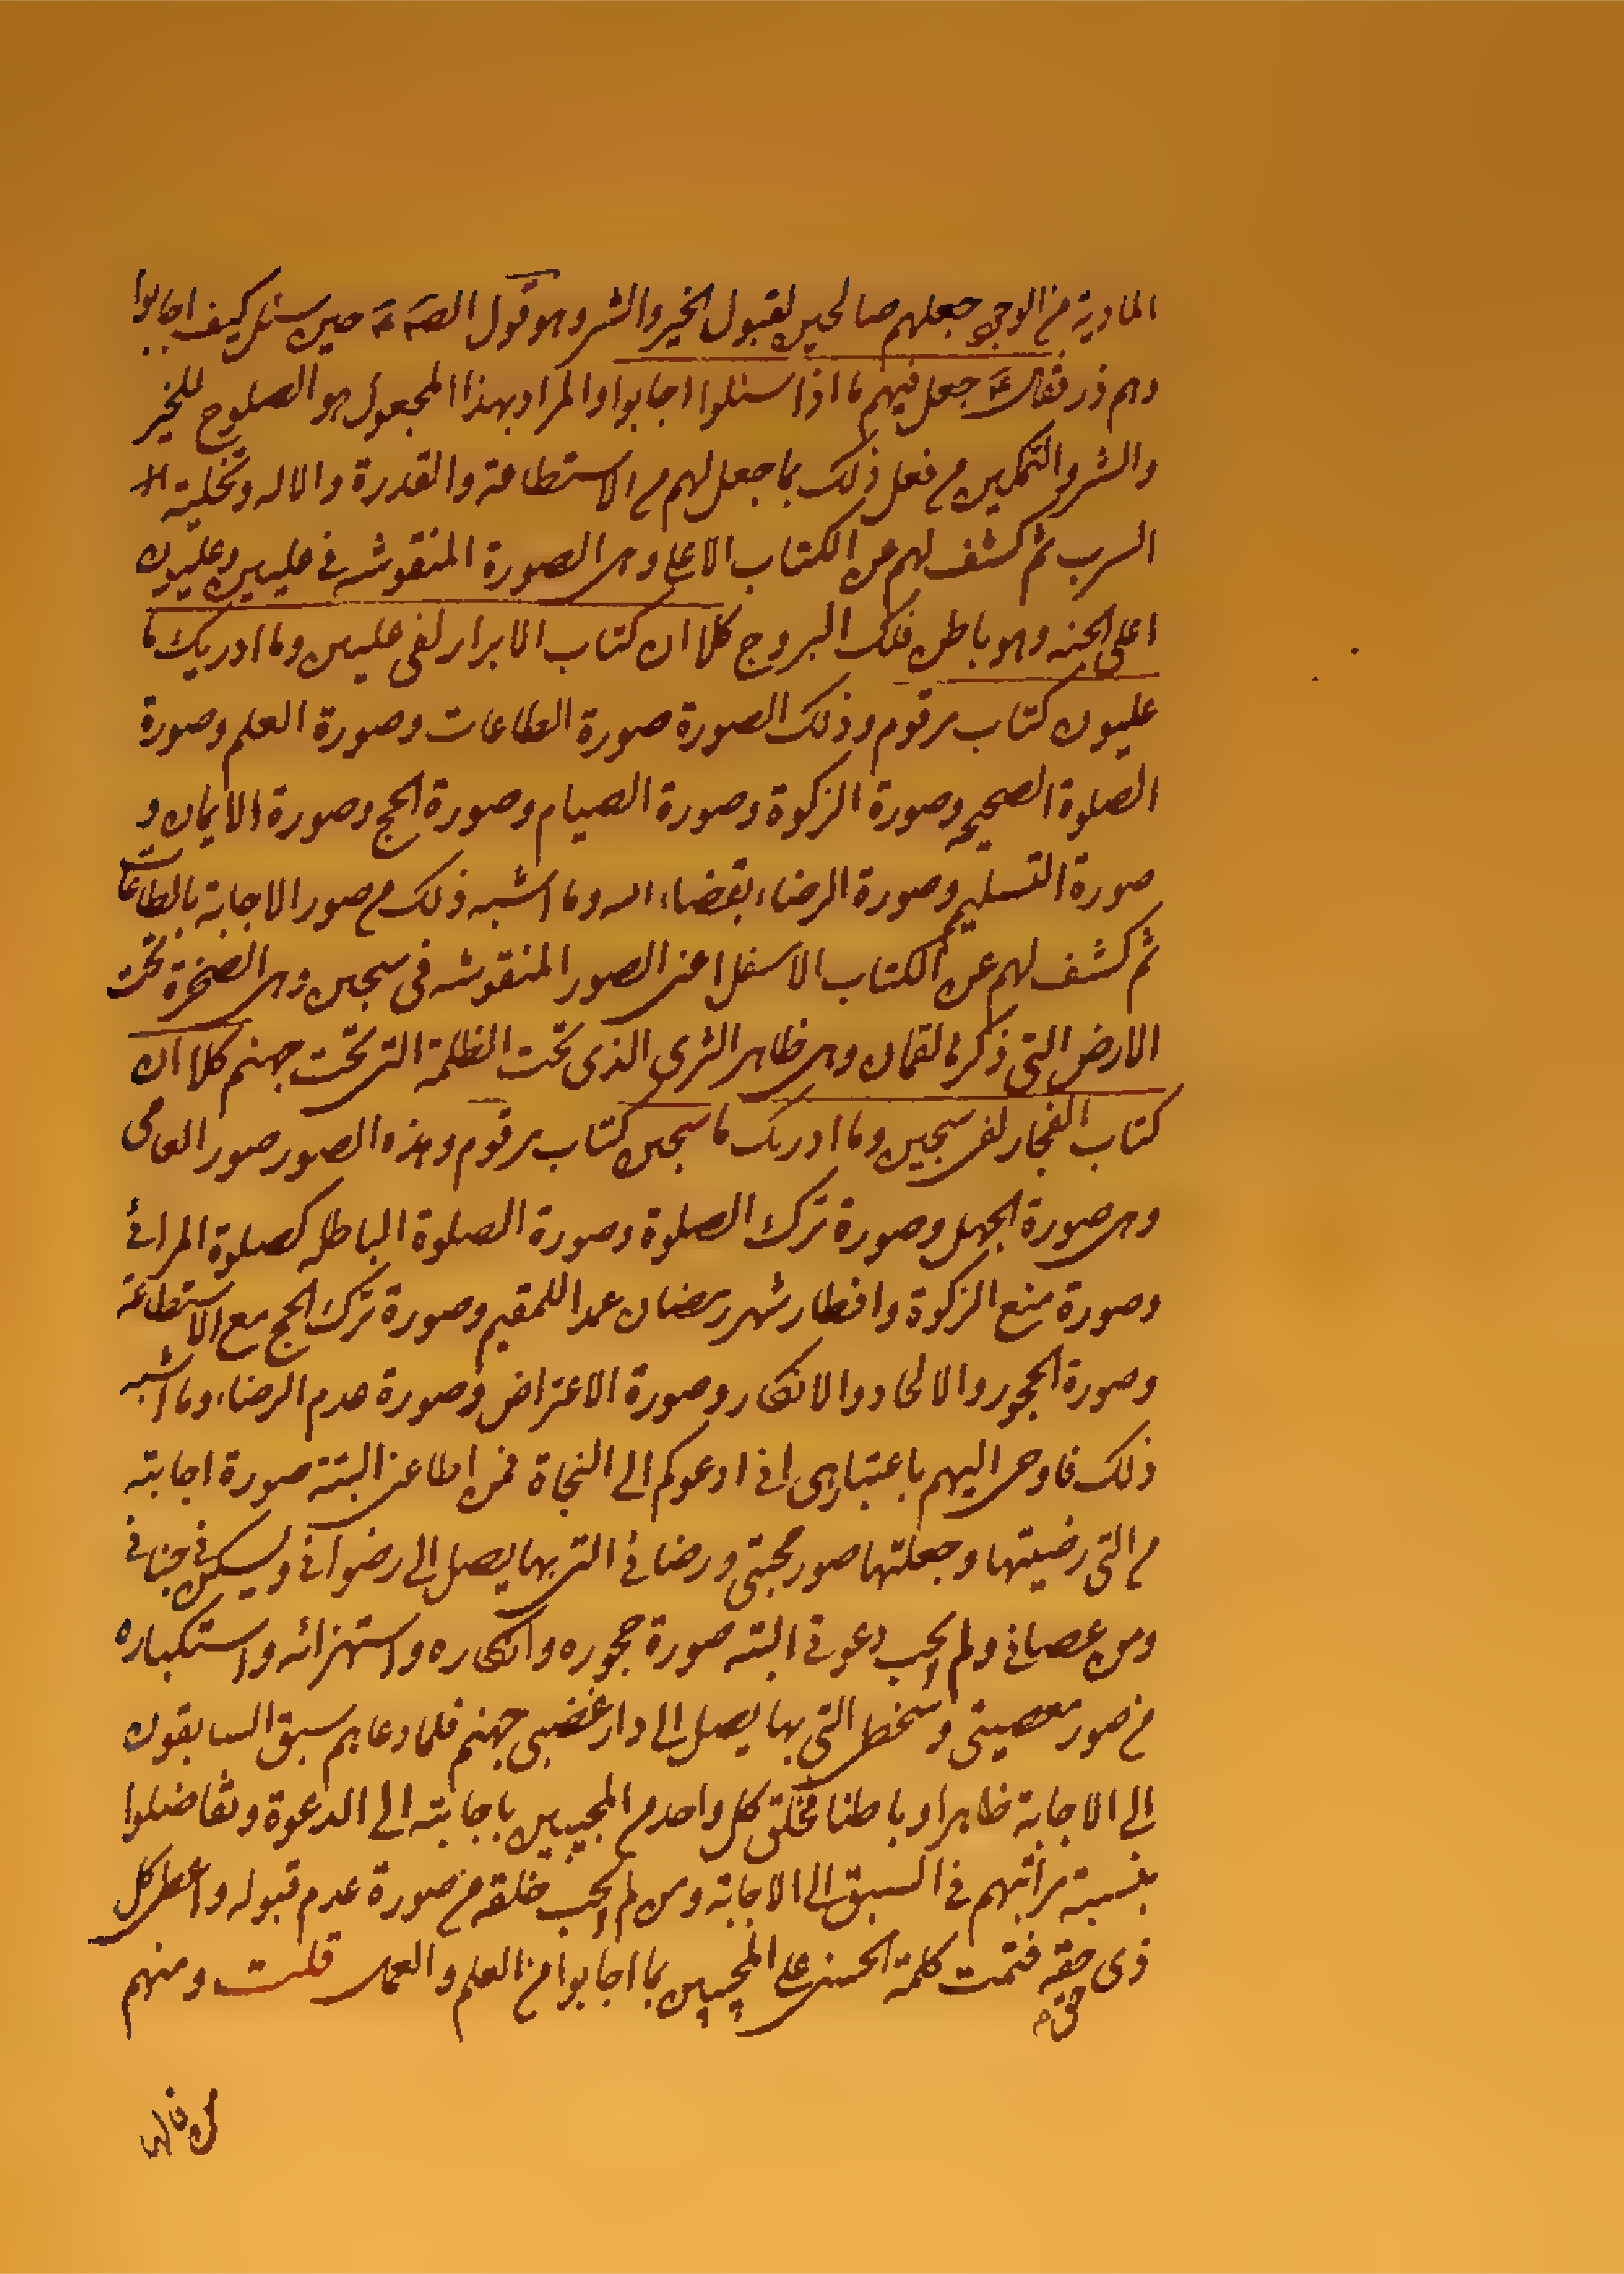 المادية من الوحي جعلهم صالحين لقبول الخير والشر وهو قول الصّ ع حين سئل كيف اجابوا
وهم ذر فقال ع جعل فيهم ما اذا سئلوا اجابوا والمراد بهذا المجعول هو الصلوح للخير
والشر والتمكين من فعل ذلك بما جعل لهم من الاستطاعة والقدرة والاله وتخلية
السرب ثم كشف لهم عن الكتاب الاعلى وهى الصورة المنقوشه في عليين وعليون
اعلى الجنه وهو باطن فلك البروج كلا ان كتاب الابرار لفى عليين وما ادريك ما
عليون كتاب مرقوم وذلك الصورة صورة الطاعات وصورة العلم وصورة
الصلوة الصحيحه وصورة الزكوة وصورة الصيام وصورة الحج وصورة الايمان و
صورة التسليم وصورة الرضاء بقضاء الله وما اشبه ذلك من صور الاجابة بالطاعات
ثم كشف لهم عن الكتاب الاسفل اعنى الصور المنقوشه في سجين وهى الصخرة تحت
الارض التي ذكره لقمان وهى ظاهر الثرى الذى تحت الظلمة التى تحت جهنم كلا ان
كتاب الفجار لفى سجين وما ادريك ما سجين كتاب مرقوم وهذه الصور صور المعاصى
وهى صورة الجهل وصورة ترك الصلوة وصورة الصلوة الباطله كصلوة المرائى
وصورة منع الزكوة وافطار شهر رمضان عمدا للمقيم وصورة ترك الحج مع الاستطاعة
وصورة الجحور والالحاد والانكار وصورة الاعتراض وصورة عدم الرضاء وما اشبه
ذلك فاوحى اليهم باعتبارهى انى ادعوكم الى النجاة فمن اطاعنى البتة صورة اجابته
من التي رضيتها وجعلتها صور محبتى ورضائى التى بها يصل الى رضوانى وليسكن في جنانى
ومن عصانى ولم يجب دعوتى البته صورة جحوره وانكاره واستهزائه واستكباره
من صور معصيتى وسخطى التى بها يصل الى دار غضبى جهنم فلما دعاهم سبق السابقون
الى الاجابة ظاهرا وباطنا فخلق كل واحد من المجيبين باجابته الى الدعوة وتفاضلوا
بنسبة مراتبهم في السبق الى الاجابة ومن لم يجب خلقه من صورة عدم قبوله واعطى كل
ذى حقه فتمت كلمة الحسنى على المجيبين بما اجابوا من العلم والعمل قلت ومنهم
حق
من قال